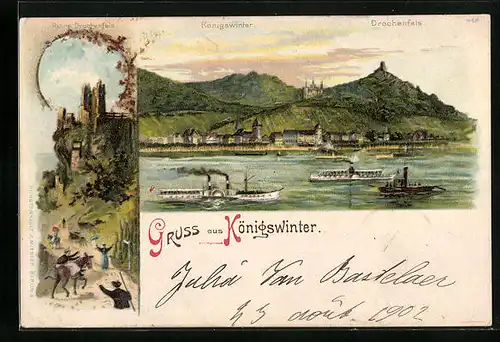 Ruine Drachenfels.
Königswinter.
Drachenfels.
Gruss aus Königswinter.
Julia Van Bastelaer
août 1902